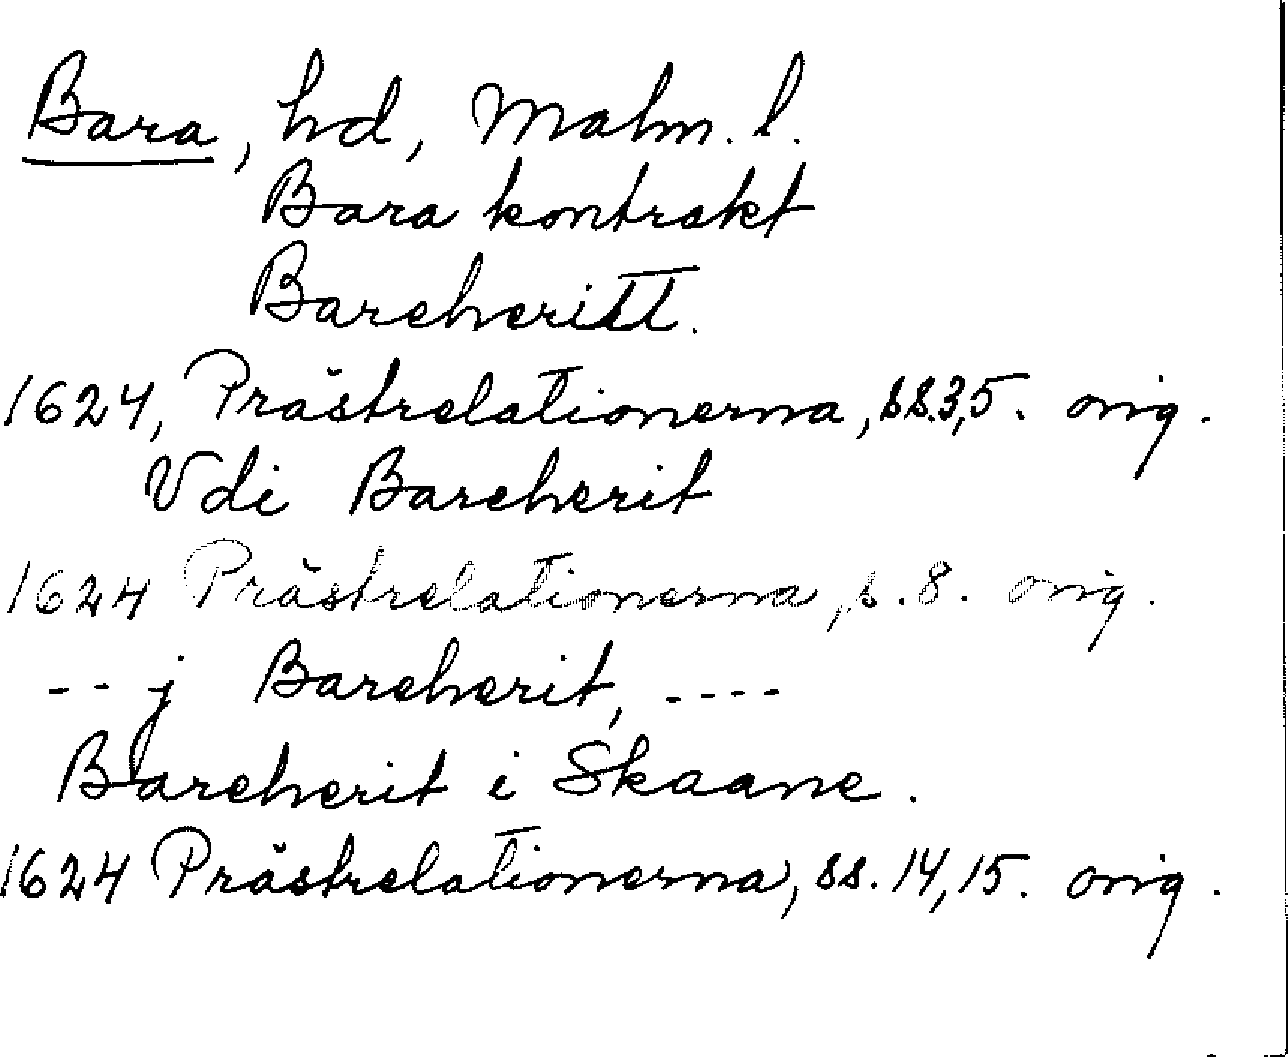 Bara, hd, Malm. l.
Bara kontrakt
Bareheritt.
1624, Prästrelationerna, ss.3,5. orig.
Vdi Bareherit
1624 Prästrelationerna, s.8. orig.
-- j Bareherit, ----
Bareherit i Skaane.
1624 Prästrelationerna, ss. 14, 15. orig.